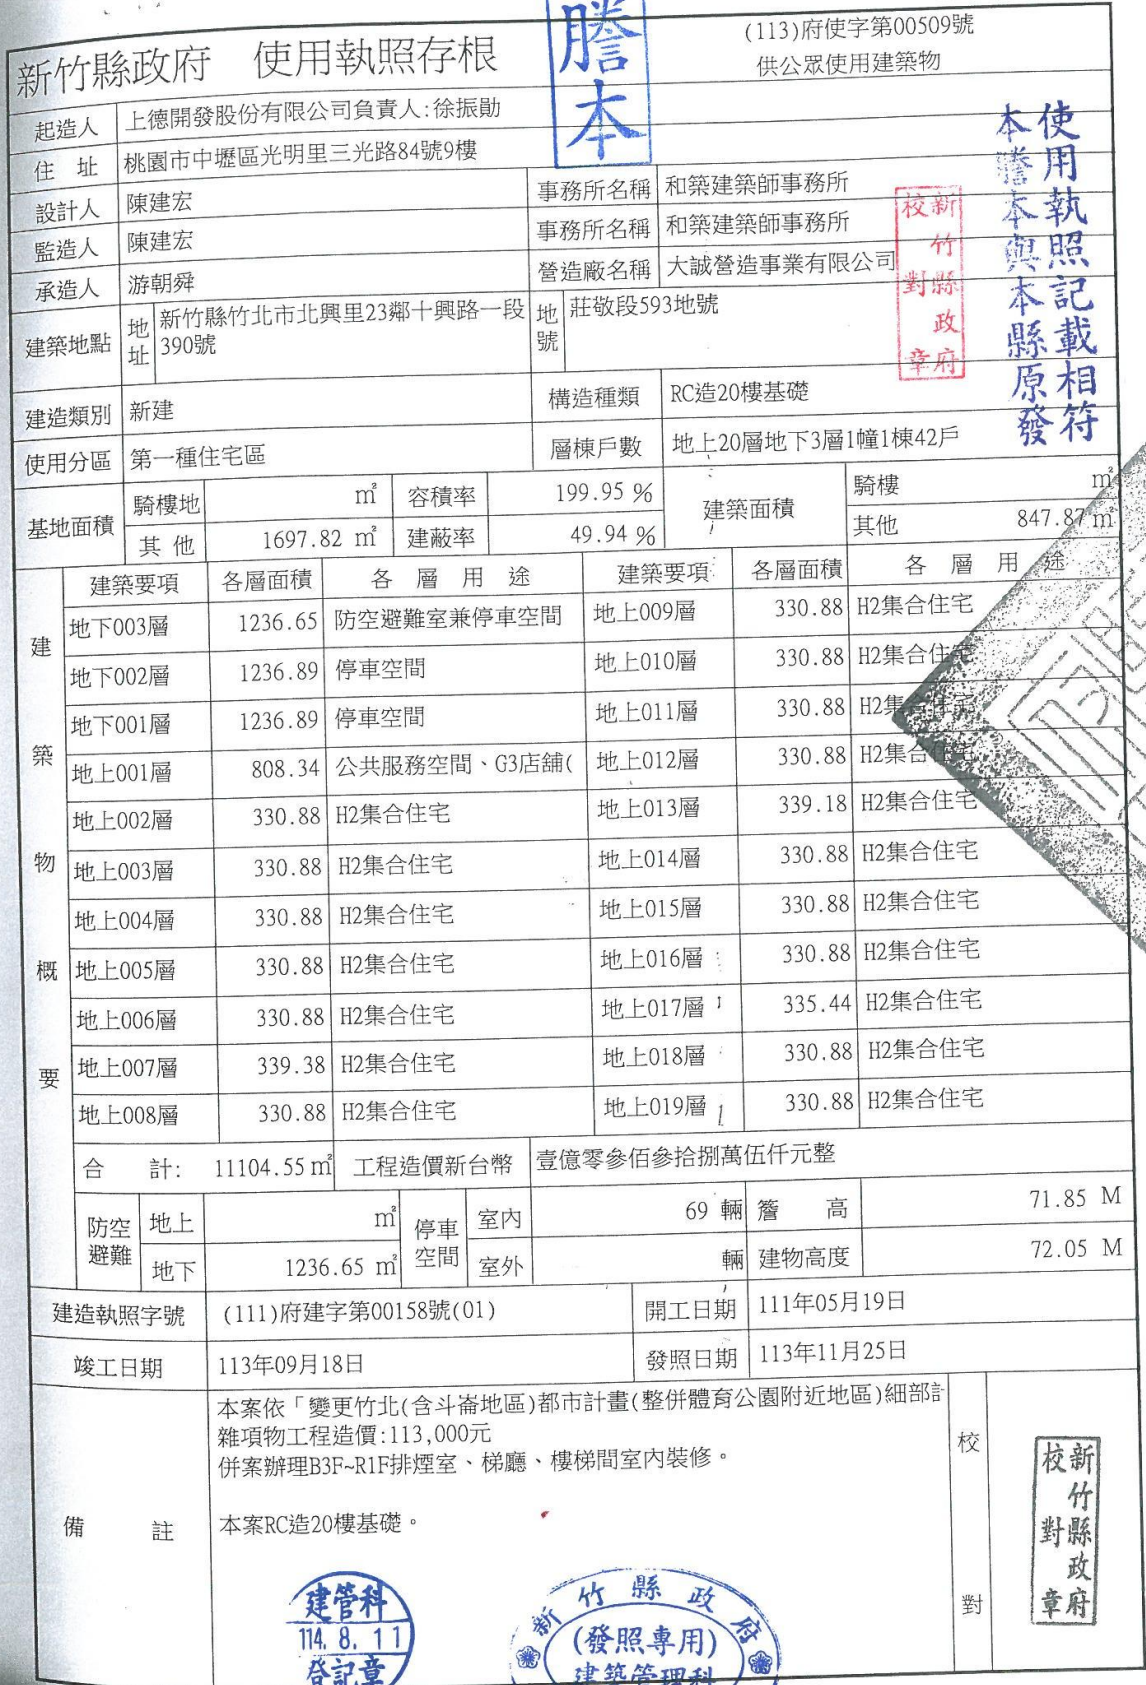 新竹縣政府 使用執照存根
謄本
(113)府使字第00509號
供公眾使用建築物
使用執照記載相符
本謄本與本縣原發
新竹縣政府
校對章
起造人 上德開發股份有限公司負責人:徐振勛
住 址 桃園市中壢區光明里三光路84號9樓
設計人 陳建宏 事務所名稱 和築建築師事務所
監造人 陳建宏 事務所名稱 和築建築師事務所
承造人 游朝舜 營造廠名稱 大誠營造事業有限公司
建築地點 地址 新竹縣竹北市北興里23鄰十興路一段 地號 莊敬段593地號
390號
建造類別 新建 構造種類 RC造20樓基礎
使用分區 第一種住宅區 層棟戶數 地上20層地下3層1幢1棟42戶
基地面積 騎樓地 ㎡ 容積率 199.95 % 建築面積 騎樓 ㎡
其 他 1697.82 ㎡ 建蔽率 49.94 % 其他 847.87㎡
建築物概要
建築要項 各層面積 各 層 用 途 建築要項 各層面積 各 層 用 途
地下003層 1236.65 防空避難室兼停車空間 地上009層 330.88 H2集合住宅
地下002層 1236.89 停車空間 地上010層 330.88 H2集合住宅
地下001層 1236.89 停車空間 地上011層 330.88 H2集合住宅
地上001層 808.34 公共服務空間、G3店舖( 地上012層 330.88 H2集合住宅
地上002層 330.88 H2集合住宅 地上013層 339.18 H2集合住宅
地上003層 330.88 H2集合住宅 地上014層 330.88 H2集合住宅
地上004層 330.88 H2集合住宅 地上015層 330.88 H2集合住宅
地上005層 330.88 H2集合住宅 地上016層 330.88 H2集合住宅
地上006層 330.88 H2集合住宅 地上017層 335.44 H2集合住宅
地上007層 339.38 H2集合住宅 地上018層 330.88 H2集合住宅
地上008層 330.88 H2集合住宅 地上019層 330.88 H2集合住宅
合 計: 11104.55㎡ 工程造價新台幣 壹億零參佰參拾捌萬伍仟元整
防空避難 地上 ㎡ 停車空間 室內 69 輛 簷 高 71.85 M
地下 1236.65 ㎡ 室外 輛 建物高度 72.05 M
建造執照字號 (111)府建字第00158號(01) 開工日期 111年05月19日
竣工日期 113年09月18日 發照日期 113年11月25日
備 註
本案依「變更竹北(含斗崙地區)都市計畫(整併體育公園附近地區)細部計
雜項物工程造價:113,000元
併案辦理B3F~R1F排煙室、梯廳、樓梯間室內裝修。
本案RC造20樓基礎。
校對
新竹縣政府
校對章
建管科
114. 8. 11
登記章
新竹縣政府
(發照專用)
建築管理科